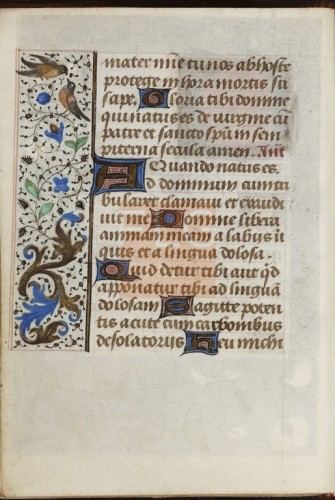 mater mie tu nos ab hoste
protege in hora mortis su
scipe. Gloria tibi domine
qui natus es de virgine cu
patre et sancto spū in sem
piterna secula amen. Ant
Quando natus es.
Ad dominum cum tri
bularer clamavi et exaudi
vit me Domine libera
animam meam a labijs ini
quis et a lingua dolosa.
Quid detur tibi aut qd
apponatur tibi ad linguā
dolosam Sagitte poten
tis acute cum carbonibus
desolatorijs Heu michi